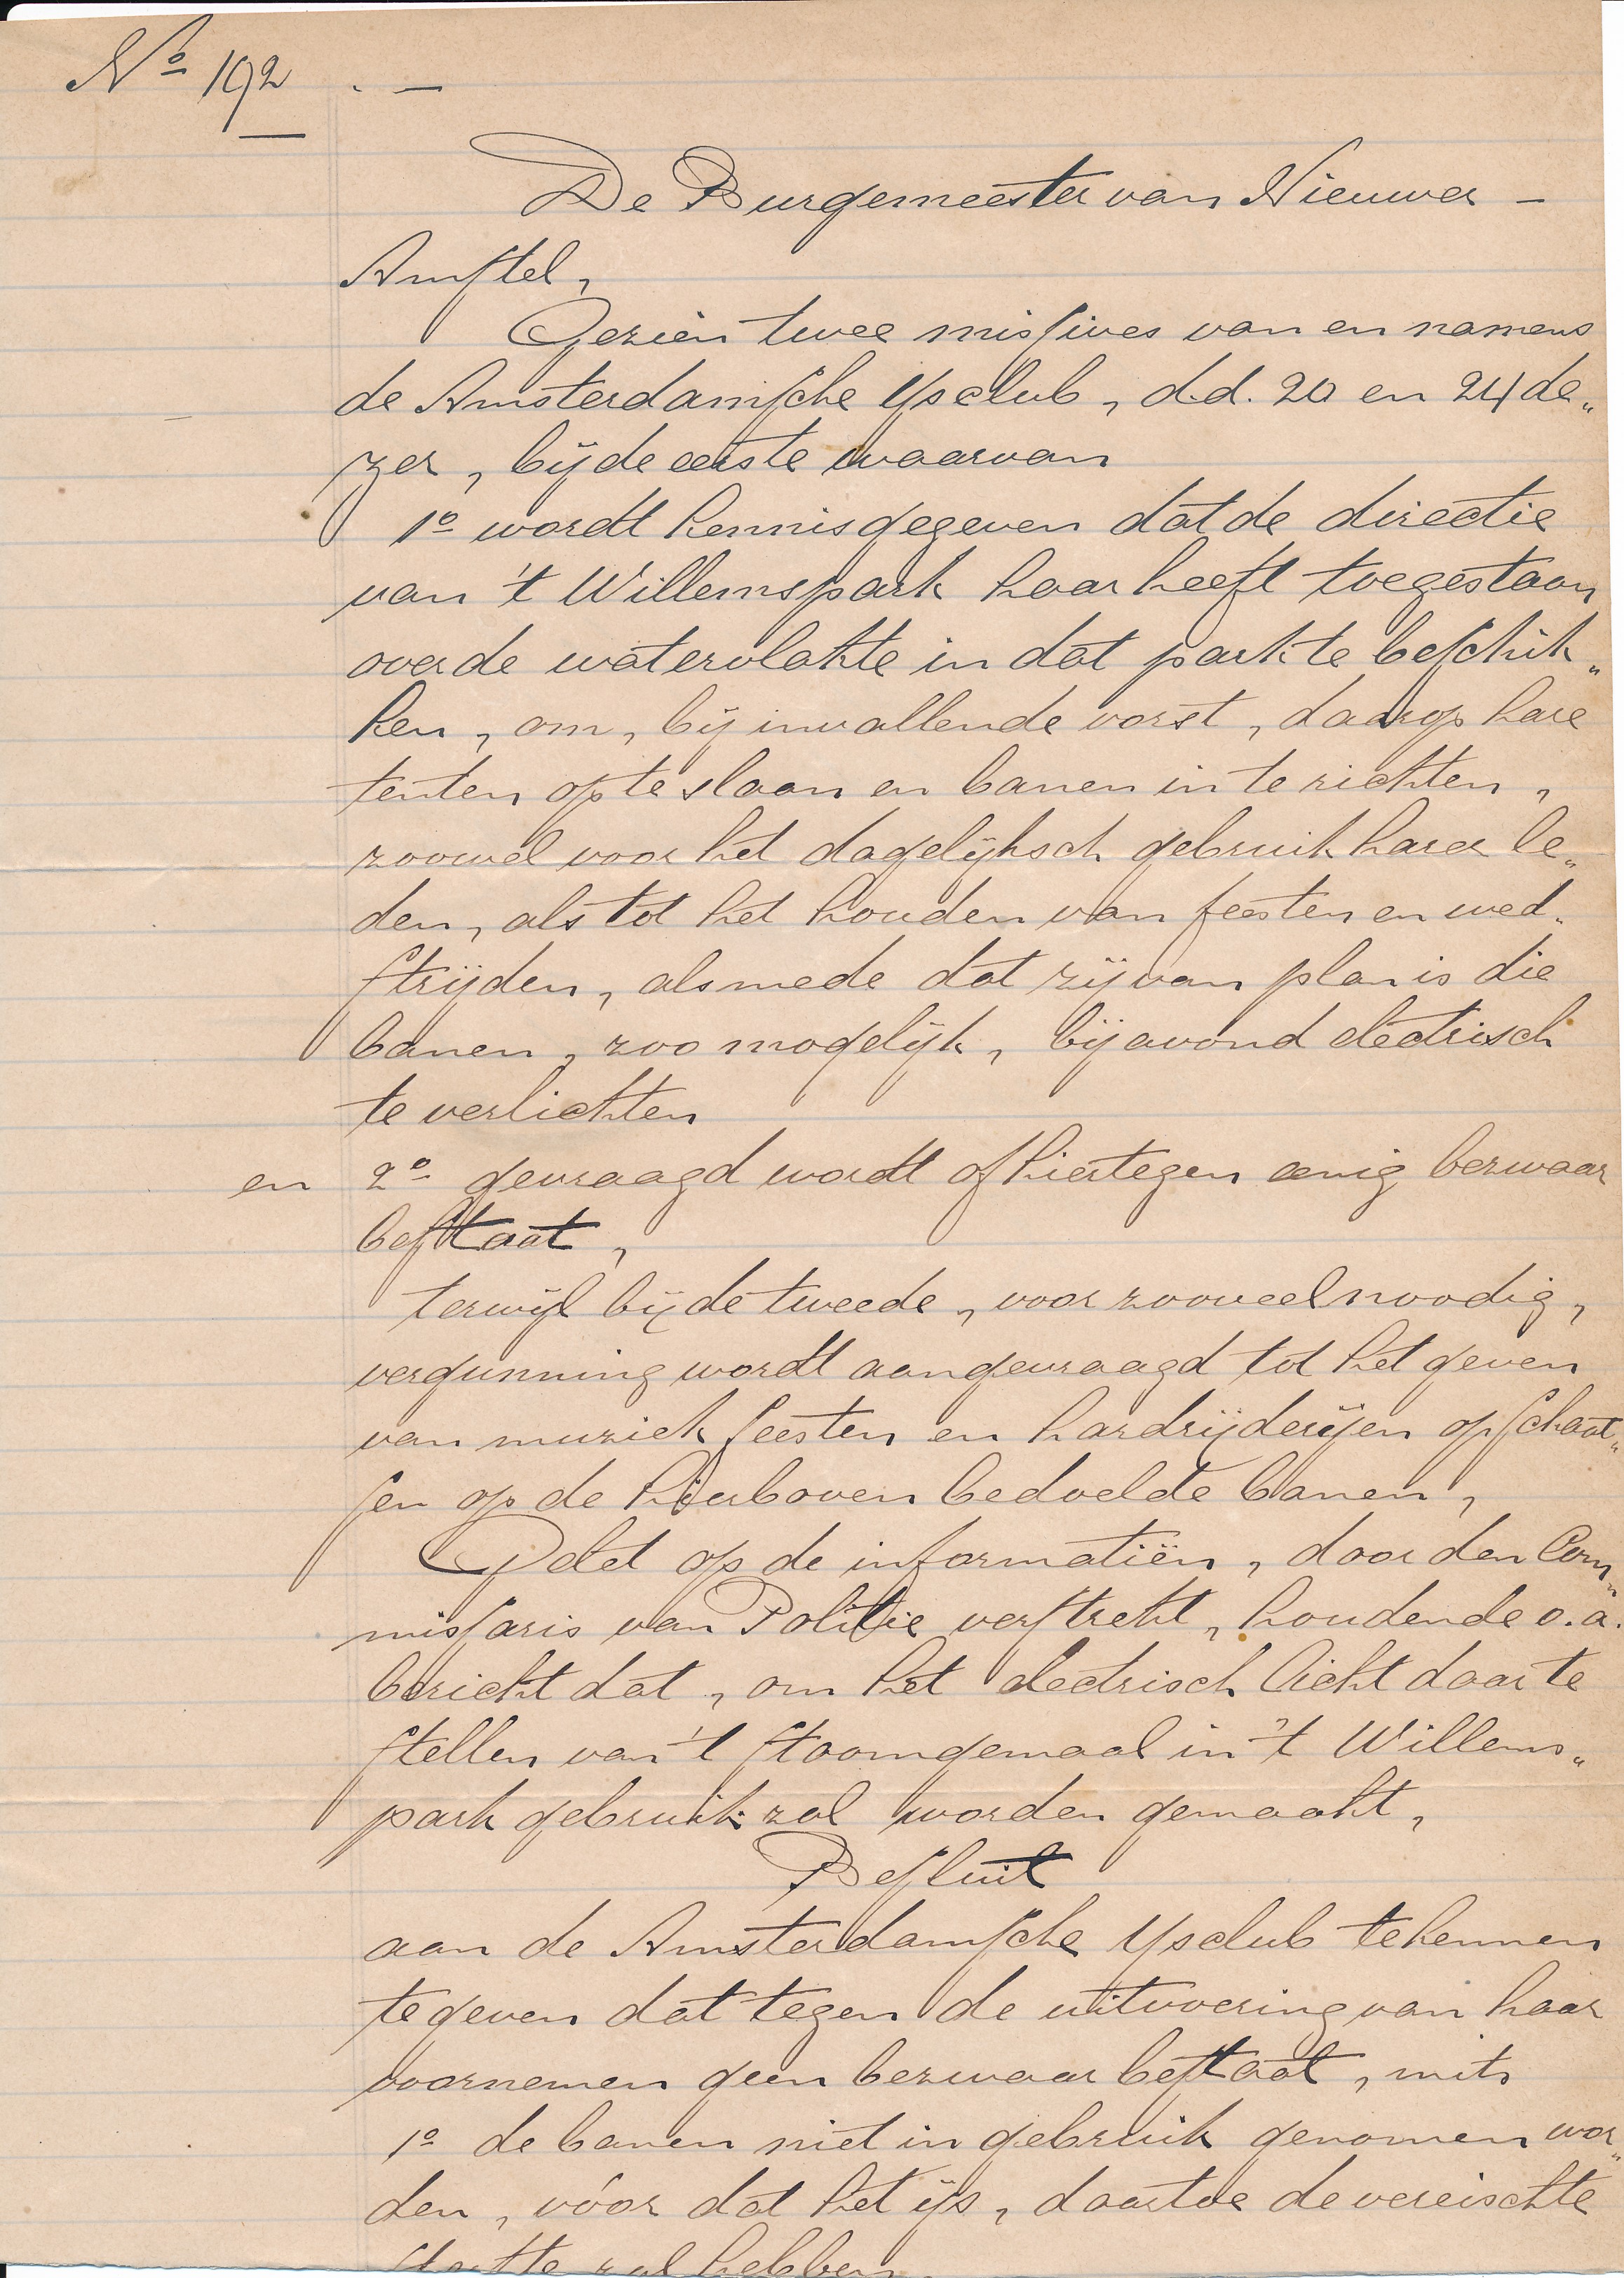 No 192 . —
De Burgemeester van Nieuwer-
Amstel,
Gezien twee missives van en namens
de Amsterdamsche IJsclub, d.d. 20 en 24 de„
zer, bij de eerste waarvan
1o wordt kennisgegeven dat de directie
van 't Willemspark haar heeft toegestaan
over de watervlakte in dat park te beschik„
ken, om, bij invallende vorst, daarop hare
tenten op te slaan en banen in te richten,
zoowel voor het dagelijksch gebruik harer le„
den, als tot het houden van feesten en wed„
strijden, alsmede dat zij van plan is die
banen, zoo mogelijk, bij avond electrisch
te verlichten
en 2o gevraagd wordt of hiertegen eenig bezwaar
bestaat,
terwijl bij de tweede, voor zooveel noodig,
vergunning wordt aangevraagd tot het geven
van muziek feesten en hardrijderijen op schaat„
sen op de hierboven bedoelde banen,
Gelet op de informatiën, door den Com„
missaris van Politie verstrekt, houdende o.a.
bericht dat, om het electrisch licht daar te
stellen van 't stoomgemaal in 't Willems„
park gebruik zal worden gemaakt,
Besluit
aan de Amsterdamsche IJsclub te kennen
te geven dat tegen de uitvoering van haar
voornemen geen bezwaar bestaat, mits
1o de banen niet in gebruik genomen wor„
den, vóor dat het ijs, daartoe de vereischte
sterkte zal hebben.